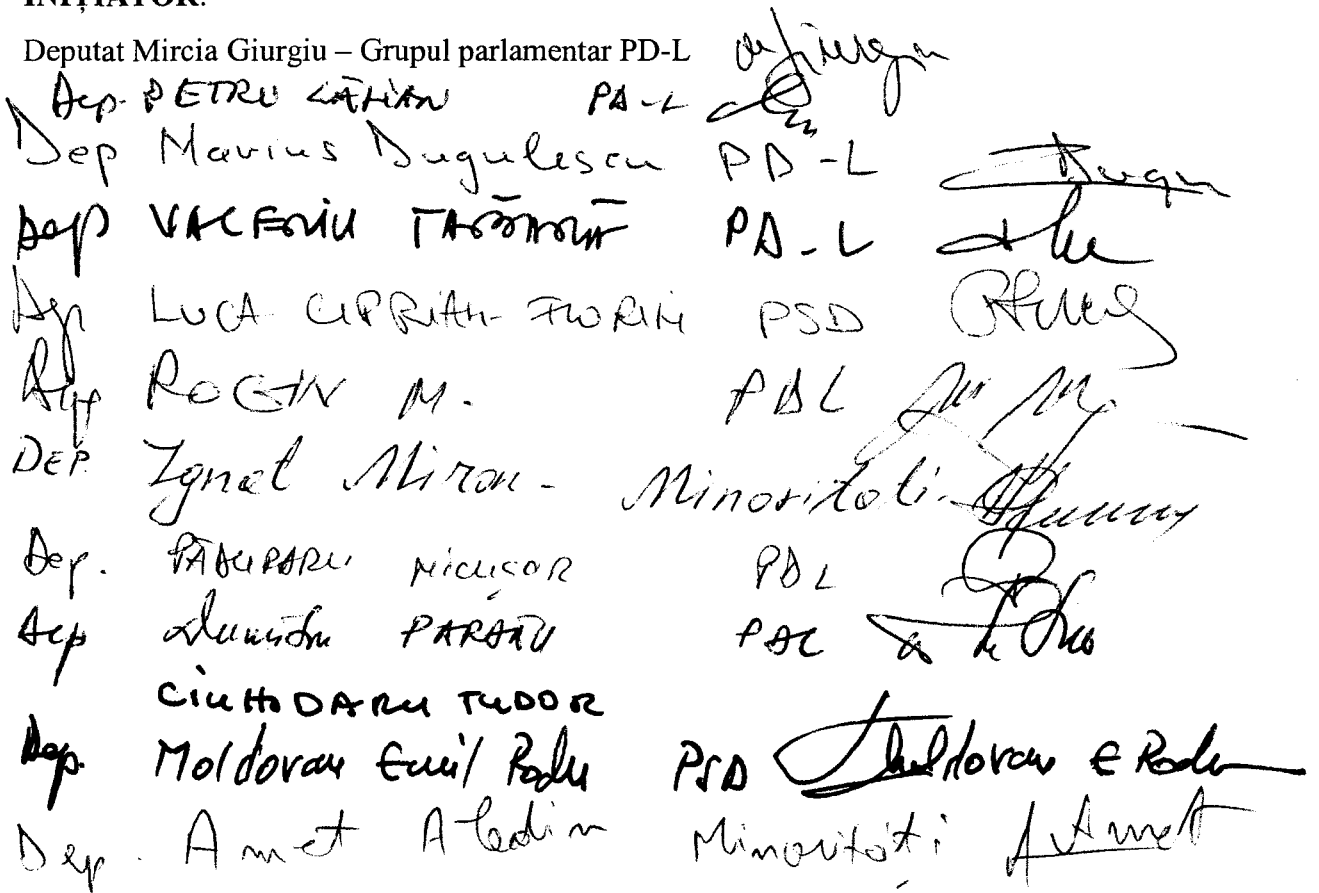 INIȚIATOR:
Deputat Mircia Giurgiu – Grupul parlamentar PD-L
Dep. PETRU CĂLIAN PD-L
Dep Marius Dugulescu PD-L Dugu
Dep VALERIU TABĂRĂ PD-L
Dep LUCA CIPRIAN-FLORIN PSD
Dep ROGIN M. PDL
DEP. Ignat Miron - Minorități -
Dep. PĂDURARU NICUȘOR PDL
Dep Dumitru PARDĂU PDL
CIUHODARU TUDOR
Dep. Moldovan Emil Radu PSD Moldovan E Radu
Dep. Amet Aledin Minorități A Amet